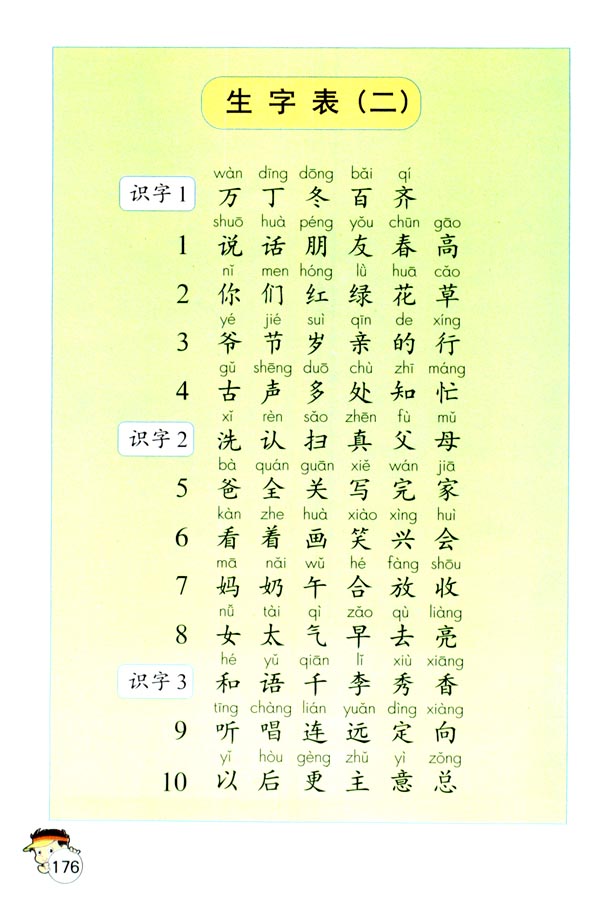 生字表（二）
wàn dīng dōng bǎi qí
识字1 万 丁 冬 百 齐
shuō huà péng yǒu chūn gāo
1 说 话 朋 友 春 高
nǐ men hóng lǜ huā cǎo
2 你 们 红 绿 花 草
yé jié suì qīn de xíng
3 爷 节 岁 亲 的 行
gǔ shēng duō chù zhī máng
4 古 声 多 处 知 忙
xǐ rèn sǎo zhēn fù mǔ
识字2 洗 认 扫 真 父 母
bà quán guān xiě wán jiā
5 爸 全 关 写 完 家
kàn zhe huà xiào xìng huì
6 看 着 画 笑 兴 会
mā nǎi wǔ hé fàng shōu
7 妈 奶 午 合 放 收
nǚ tài qì zǎo qù liàng
8 女 太 气 早 去 亮
hé yǔ qiān lǐ xiù xiāng
识字3 和 语 千 李 秀 香
tīng chàng lián yuǎn dìng xiàng
9 听 唱 连 远 定 向
yǐ hòu gèng zhǔ yì zǒng
10 以 后 更 主 意 总
176